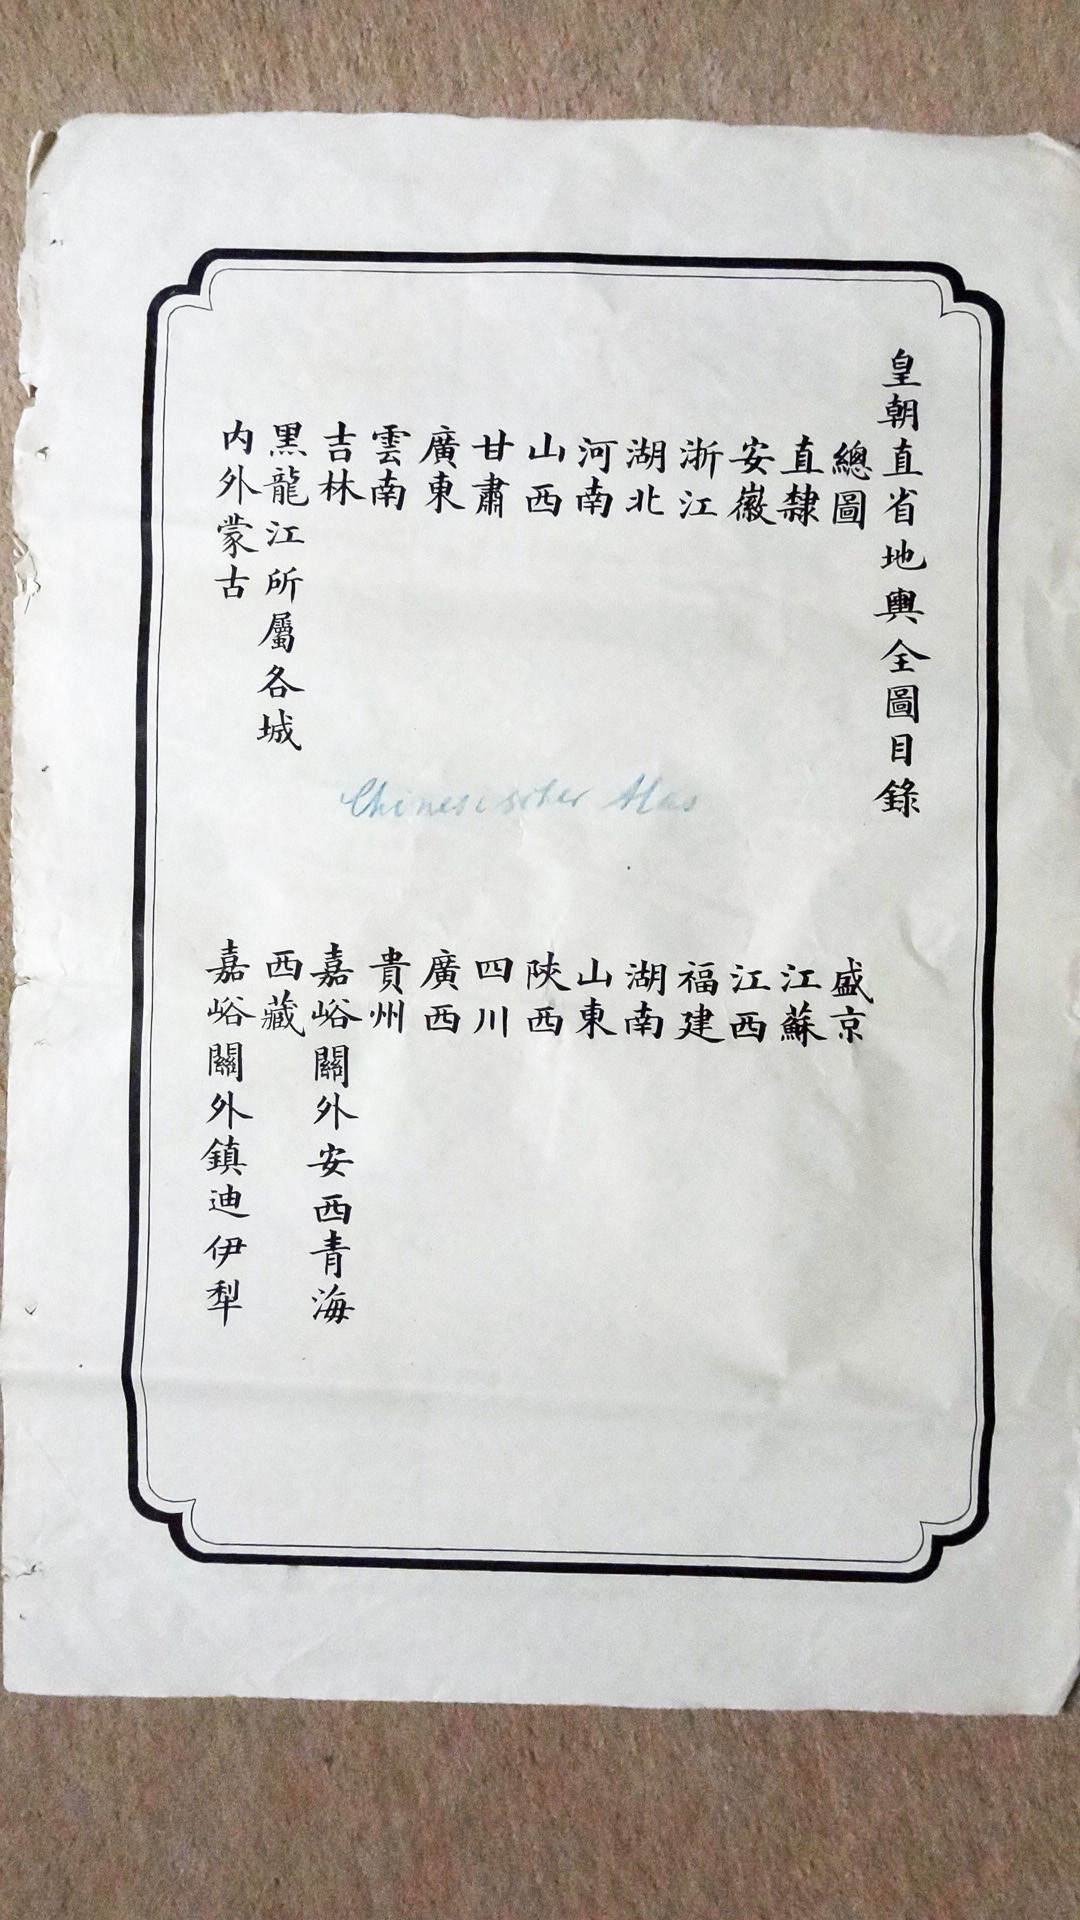 皇朝直省地輿全圖目錄
總圖
盛京
直隸
江蘇
安徽
江西
浙江
福建
湖北
湖南
河南
山東
山西
陝西
甘肅
四川
廣東
廣西
雲南
貴州
吉林
嘉峪關外安西青海
黑龍江所屬各城
西藏
内外蒙古
嘉峪關外鎮迪伊犁
Chinesischer Atlas